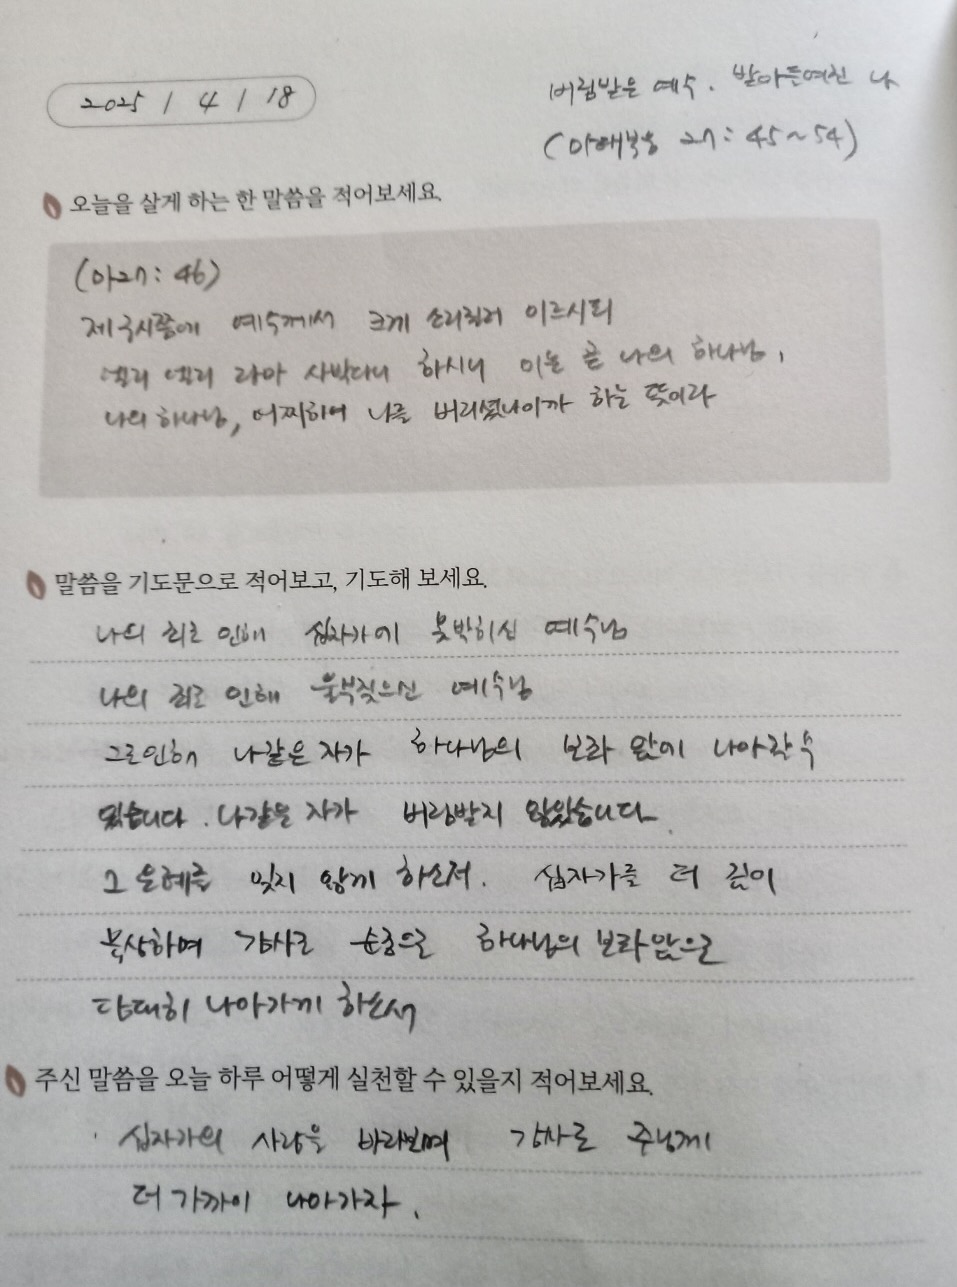 2025 / 4 / 18
버림받은 예수. 받아들여진 나
(마태복음 27:45~54)
오늘을 살게 하는 한 말씀을 적어보세요.
(마27:46)
제구시쯤에 예수께서 크게 소리질러 이르시되
엘리 엘리 라마 사박다니 하시니 이는 곧 나의 하나님,
나의 하나님, 어찌하여 나를 버리셨나이까 하는 뜻이라
말씀을 기도문으로 적어보고, 기도해 보세요.
나의 죄로 인해 십자가에 못박히신 예수님
나의 죄로 인해 울부짖으신 예수님
그로인해 나같은 자가 하나님의 보좌 앞에 나아갈 수
있습니다. 나같은 자가 버림받지 않았습니다.
그 은혜를 잊지 않게 하소서. 십자가를 더 깊이
묵상하며 감사로 순종으로 하나님의 보좌앞으로
담대히 나아가게 하소서
주신 말씀을 오늘 하루 어떻게 실천할 수 있을지 적어보세요.
십자가의 사랑을 바라보며 감사로 주님께
더 가까이 나아가자.